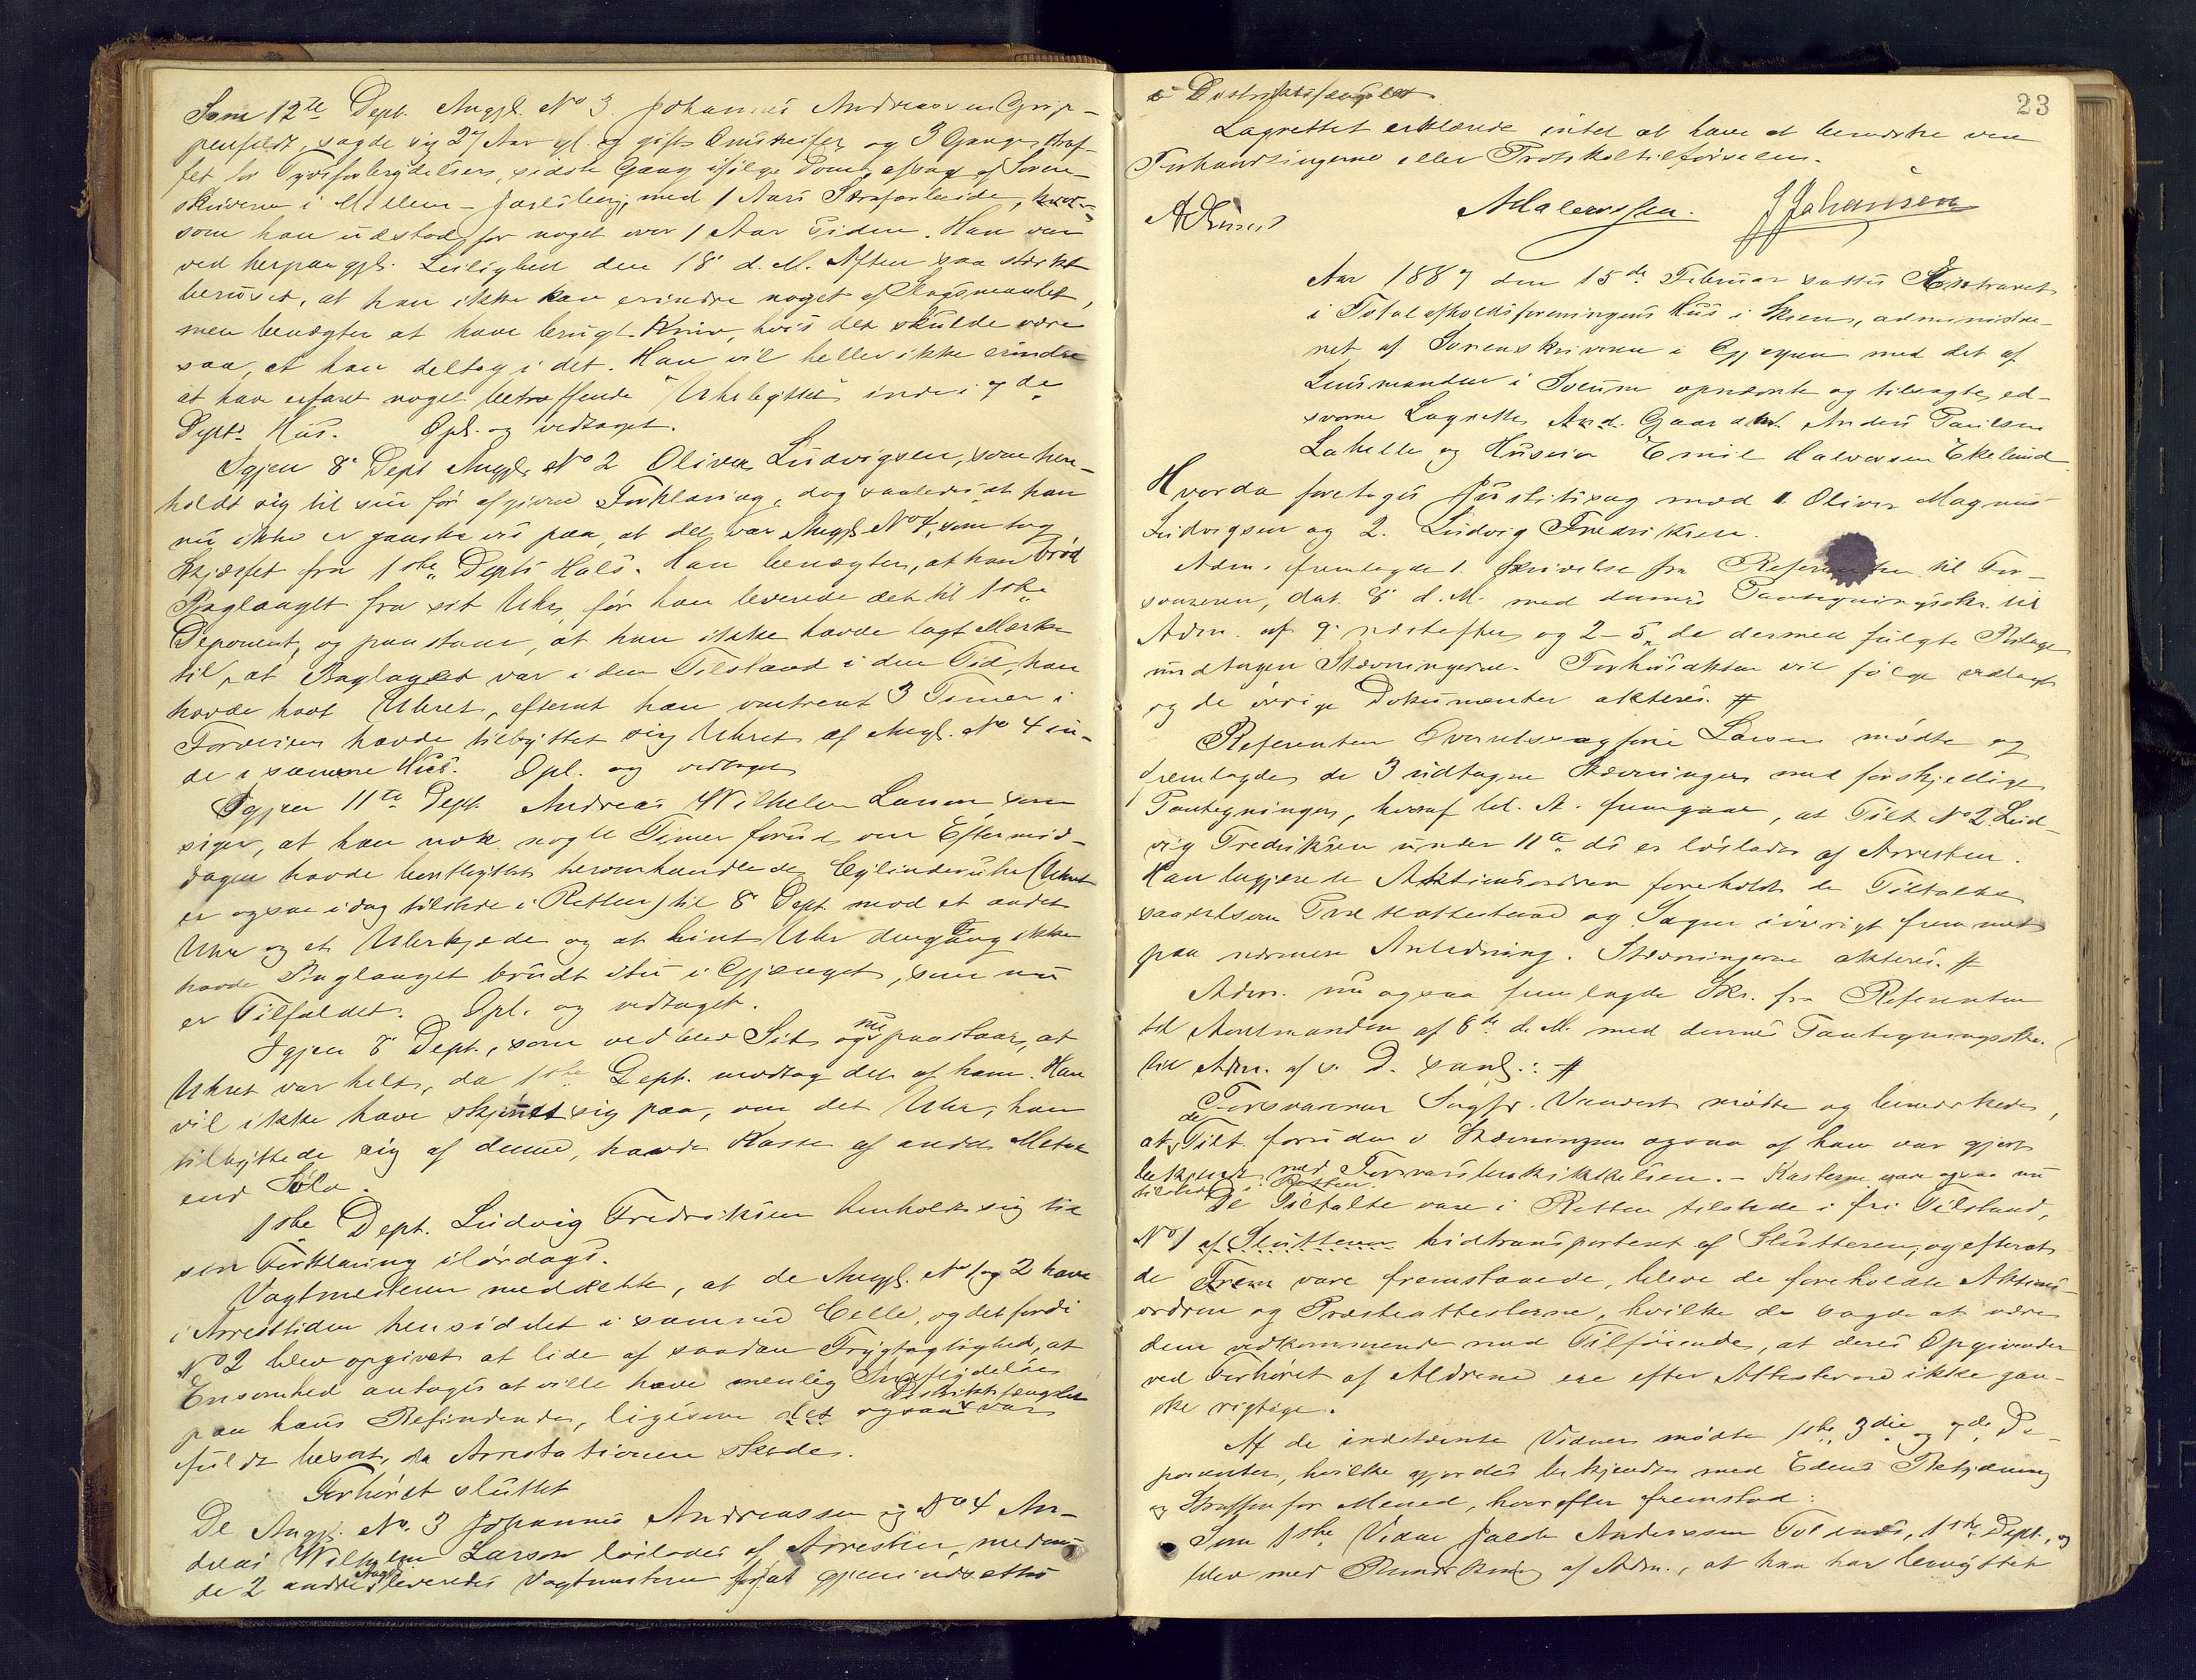 Som 12te Dept. Angjl. No 3. Johannes Andreassen Grip-
penfeldt, sagde sig 27 Aar gl. og gift Omstreifer og 3 Gange straf-
fet for Tyvsforbrydelser, sidste Gang ifølge Dom, afsagt af Soren-
skriveren i Mellem-Jarlsberg, med 1 Aars Strafarbeide,
som han udstod for noget over 1 Aar siden. Han var
ved herpaagjl. Leilighed den 18. d. M. Aften saa stærkt
beruset, at han ikke kan erindre noget af Slagsmaalet,
men benægter at have brugt Kniv, hvis det skulde være
saa, at han deltog i det. Han vil heller ikke erindre
at have erfaret noget betræffende Uhrbyttet inde i 7de
Depts Hus. Opl. og vedtaget.
Igjen 8. Dept Angjl. No 2 Oliver Ludvigsen, som hen-
holdt sig til sin før afgivne Forklaring, dog saaledes, at han
nu ikke er ganske vis paa, at det var Angjl. No 4, som tog
Skjærfet fra 1ste Depts Hals. Han benægter, at han brød
Baglaaget fra sit Uhr, før han leverede det til 1ste
Deponent, og paastaar, at han ikke havde lagt Mærke
til, at Baglaaget var i den Tilstand i den Tid, han
havde havt Uhret, efterat han omtrent 3 Timer i
Forveien havde tilbyttet sig Uhret af Angjl. No 4 in-
de i samme Hus. Opl. og vedtaget
Igjen 11te Dept. Andreas Wilhelm Larson, som
siger, at han nok nogle Timer forud om Eftermid-
dagen havde bortbyttet heromhandlede Cylinderuhr (Uhret
er ogsaa idag tilstede i Retten) til 8. Dept. mod et andet
Uhr og et Uhrkjæde og at hint Uhr dengang ikke
havde Baglaaget brudt itu i Gjænget, som nu
er Tilfældet. Opl. og vedtaget.
Igjen 8. Dept., som vedblev Sit og nu paastaar, at
Uhret var helt, da 1ste Dept. modtog det af ham. Han
vil ikke have skjønt sig paa, om det Uhr, han
tilbyttede sig af denne, havde Kasse af andet Metal
end Sølv.
1ste Dept. Ludvig Fredriksen henholdt sig til
sin Forklaring ilørdags.
Vagtmesteren meddelte, at de Angjl. No 1 og 2 have
i Arresttiden hensiddet i samme Celle, og det fordi
No 2 blev opgivet at lide af saadan Frygtagtighed, at
Ensomhed antoges at ville have menlig Indflydelse
paa hans Befindende, ligesom det ogsaa var Distriktsfængslet
fuldt besat, da Arrestationen skede.
Forhøret sluttet
De Angjl. No. 3 Johannes Andreassen og No 4 An-
dreas Wilhelm Larson løslades af Arresten, medens
de 2 andre Angjl. leveredes Vagtmesteren for at gjenindsættes
i Distriktsfængslet.
23
Lagrettet erklærede intet at have at bemærke ved
Forhandlingerne eller Protokoltilførselen.
A Halvorsen. J Johansen
Aar 1887 den 15de Februar sattes Extraret
i Totalafholdsforeningens Hus i Skien, administre-
ret af Sorenskriveren i Gjerpen med det af
Lensmanden i Solum opnævnte og tilsagte, ed-
svorne Lagrette, Gaardm. Anders Paulsen
Lahelle og Huseier Emil Halvorsen Ekelund.
Hvorda foretoges Justitssag mod 1. Oliver Magnus
Ludvigsen og 2. Ludvig Fredriksen.
Adm. fremlagde 1. Skrivelse fra Referenten til For-
svareren, dat. 8. d. M. med dennes Paategningsskr. til
Adm. af 9. næstefter og 2-5, de dermed fulgte Bilage
undtagen Stævningerne. Forhørsakten vil følge vedlagt
og de øvrige Dokumenter akteres. #
Referenten Overretssagfører Larsen mødte og
fremlagde de 3 udtagne Stævninger med forskjellige
Paategninger, hvoraf bl. A. fremgaar, at Tilt. No 2 Lud-
vig Fredriksen under 11te ds er løsladt af Arresten.
Han begjærede Aktionsordren foreholdt de Tiltalte
saavelsom Præsteattesterne og Sagen iøvrigt fremmet
paa nærmere Anledning. Stævningerne akteres. #
Adm. nu ogsaa fremlagde Skr. fra Referenten
til Amtmanden af 8de d. M. med dennes Paategningsskr.
til Adm. af s. D. saal.: #
Forsvareren Sagfr. Vauvert mødte og bemærkede,
at de Tilt. foruden i Stævningen ogsaa af ham var gjort
bekjendt med Forsvarsbeskikkelsen. – Kosterne vare ogsaa nu
tilstede i Retten.
De Tiltalte vare i Retten tilstede i fri Tilstand,
No 1 af Slutteren hidtransporteret af Slutteren, og efterat
de Frem vare fremstaaede, bleve de foreholdte Aktions-
ordren og Præsteattesterne, hvilke de sagde at være
dem vedkommende med Tilføiende, at deres Opgivender
ved Forhøret af Aldrene ere efter Attesterne ikke gan-
ske rigtige.
Af de indstævnte Vidner mødte 1ste, 3die og 7de De-
ponenter, hvilke gjordes bekjendte med Edens Betydning
og Straffen for Mened, hvorefter fremstod:
Som 1ste Vidne Anderssen 1ste Dept., og
blev med Bemærkning af Adm., at han har benyttet